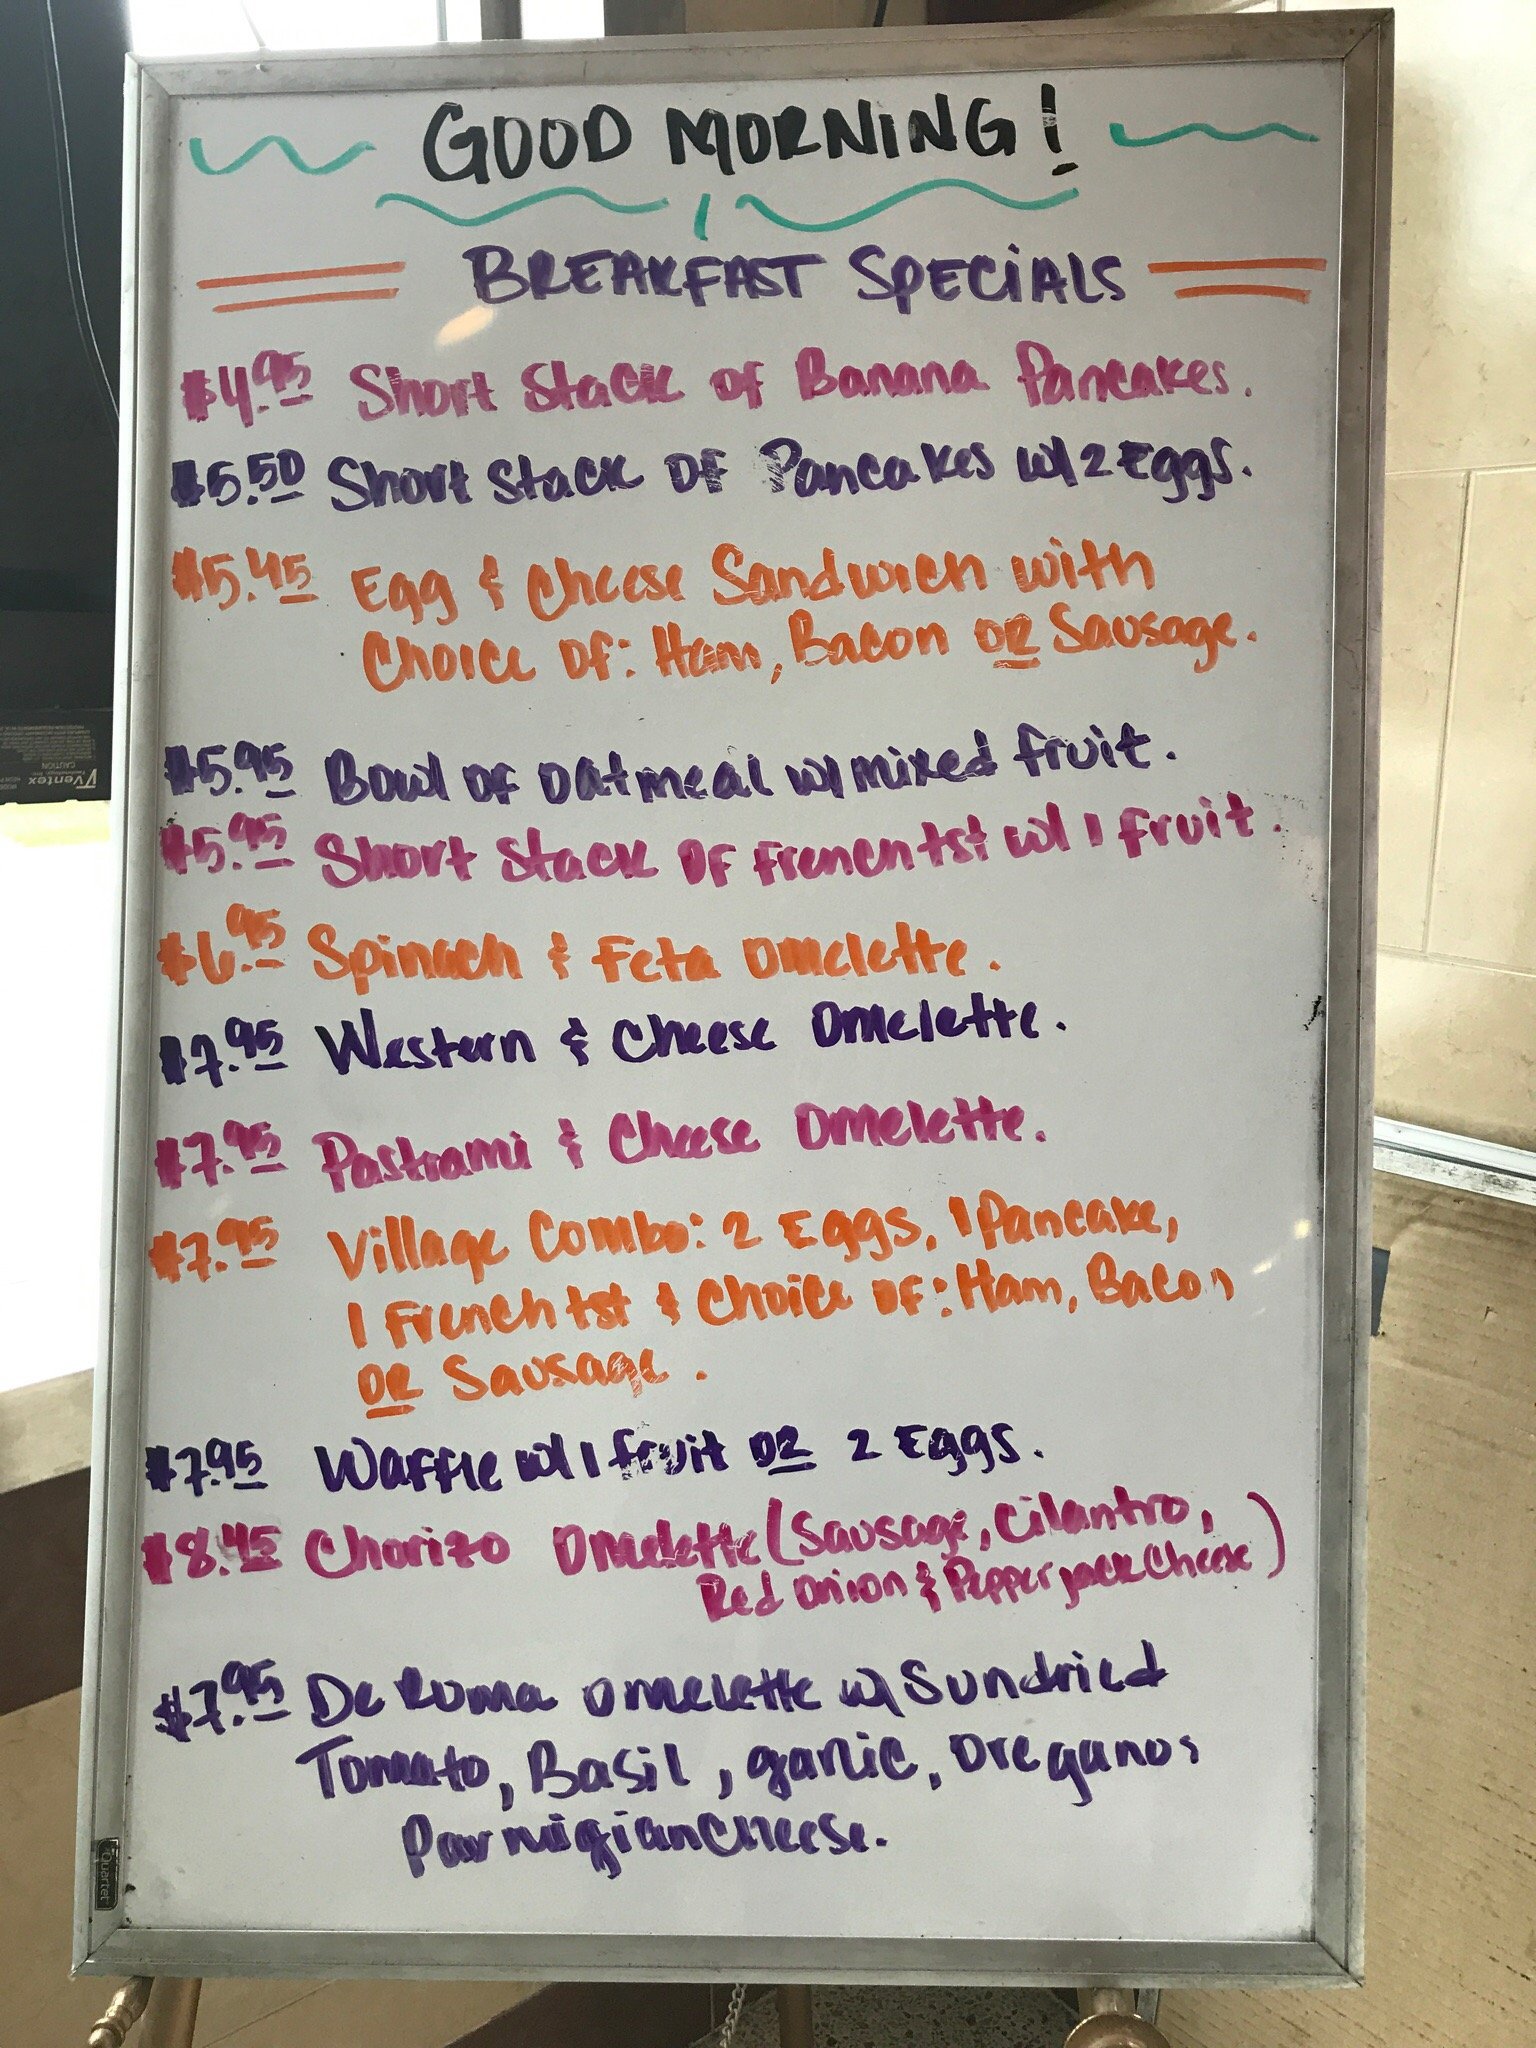 GOOD MORNING!
BREAKFAST SPECIALS
$4.95 Short Stack of Banana Pancakes.
$5.50 Short Stack OF Pancakes w/ 2 Eggs.
$5.45 Egg & Cheese Sandwich with
Choice of: Ham, Bacon OR Sausage.
$5.95 Bowl of oatmeal w/ mixed fruit.
$5.95 Short Stack OF French tst w/ 1 fruit.
$6.95 Spinach & Feta Omelette.
$7.95 Western & Cheese Omelette.
$7.95 Pastrami & Cheese Omelette.
$7.95 Village Combo: 2 Eggs, 1 Pancake,
1 French tst & Choice of: Ham, Bacon
OR Sausage.
$7.95 Waffle w/ 1 fruit OR 2 Eggs.
$8.45 Chorizo Omelette (Sausage, Cilantro,
Red Onion & Pepper jack Cheese)
$7.95 De Roma Omelette w/ Sundried
Tomato, Basil, garlic, Oregano,
Parmigian Cheese.
Ventex
Technology, Inc.
CAUTION
Quartet